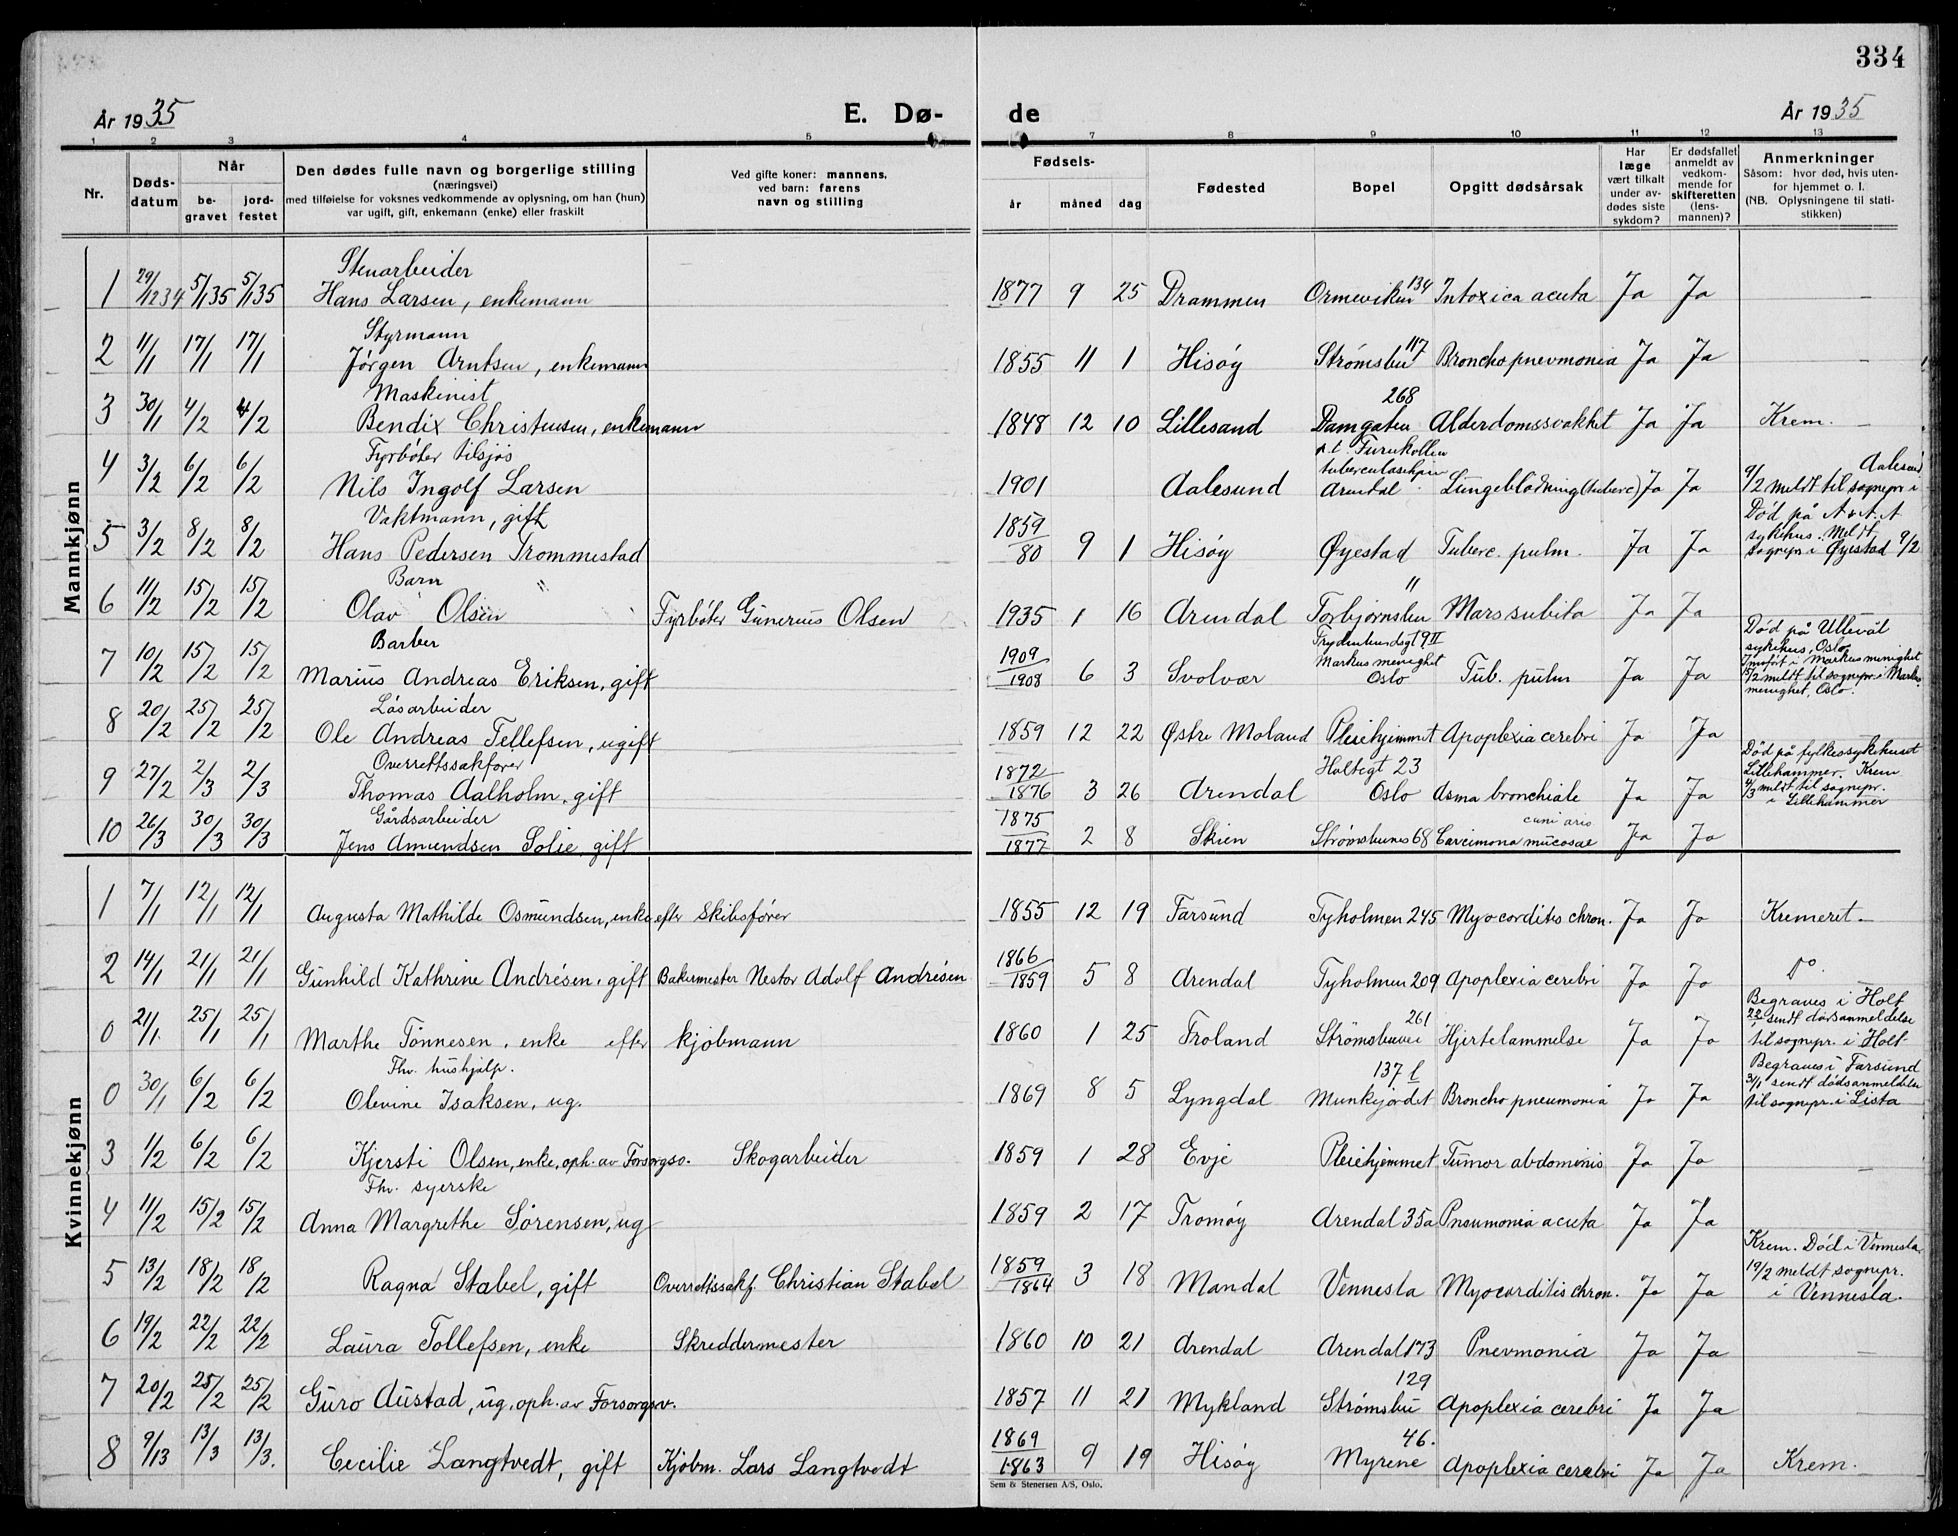 334
År 1935 E. Dø- de År 1935
1 2 3 4 5 7 8 9 10 11 12 13
Nr. Døds-datum Når be-gravet jord-festet
Den dødes fulle navn og borgerlige stilling
(næringsvei)
med tilføielse for voksnes vedkommende av oplysning, om han (hun)
var ugift, gift, enkemann (enke) eller fraskilt
Ved gifte koner: mannens,
ved barn: farens
navn og stilling
Fødsels-
år måned dag
Fødested Bopel Opgitt dødsårsak
Har læge vært tilkalt under av-dødes siste sykdom?
Er dødsfallet anmeldt av vedkom-mende for skifteretten (lens-mannen)?
Anmerkninger
Såsom: hvor død, hvis uten-
for hjemmet o. l.
(NB. Oplysningene til stati-
stikken)
Mannkjønn
Stenarbeider
1 29/12 34 5/1 35 5/1 35 Hans Larsen, enkemann 1877 9 25 Drammen Ormeviken 134 Intoxica acuta Ja Ja —
Styrmann
2 11/1 17/1 17/1 Jørgen Arntsen, enkemann 1855 11 1 Hisøy Strømsbu 117 Bronchopnevmonia Ja Ja —
Maskinist 268
3 30/1 4/2 4/2 Bendix Christensen, enkemann 1848 12 10 Lillesand Damgaten Alderdomssvakhet Ja Ja Krem. —
Fyrbøter tilsjøs p.t. Furukollen
tuberculosehjem Aalesund
4 3/2 6/2 6/2 Nils Ingolf Larsen 1901 Aalesund Arendal Lungeblødning (tuberc) Ja Ja 9/2 meldt til sognepr i
Vaktmann, gift Død på A.A.A
sykehus. Meldt
5 3/2 8/2 8/2 Hans Pedersen Trommestad 1859/80 9 1 Hisøy Øyestad Tuberc. pulm. Ja Ja sognepr i Øyestad 9/2
Barn " "
6 11/2 15/2 15/2 Olav Olsen Fyrbøter Gunerius Olsen 1935 1 16 Arendal Torbjørnsbu Mars subita Ja Ja
Barber Markus menighet Død på Ullevål
sykehus, Oslo
Innført i Markus menighet
7 10/2 15/2 15/2 Marius Andreas Eriksen, gift 1909/1908 6 3 Svolvær Oslo Tub. pulm Ja Ja meldt til sognepr. i Markus
menighet, Oslo.
Løsarbeider
8 20/2 25/2 25/2 Ole Andreas Tellefsen, ugift 1859 12 22 Østre Moland Pleiehjemmet Apoplexia cerebri Ja Ja
Overrettssakfører Holtegt 23 Død på fylkessykehuset
Lillehammer. Krem
9 27/2 2/3 2/3 Thomas Aalholm, gift 1872/1876 3 26 Arendal Oslo Asma bronchiale Ja Ja 4/3 meldt til sognepr.
i Lillehammer
Gårdsarbeider
10 26/3 30/3 30/3 Jens Amundsen Solie, gift 1875/1877 2 8 Skien Strømsbunes 68 Carcimona mucosae Ja Ja
Kvinnekjønn
1 7/1 12/1 12/1 Augusta Mathilde Osmundsen, enke efter Skibsfører 1855 12 19 Farsund Tyholmen 245 Myocorditis chron. Ja Ja Kremeret —
2 14/1 21/1 21/1 Gunhild Kathrine Andrésen, gift Bakermester Nestor Adolf Andrésen 1866/1859 5 8 Arendal Tyholmen 209 Apoplexia cerebri Ja Ja Do.
261 Begraves i Holt
22/1 sendt dødsanmeldelse
0 21/1 25/1 25/1 Marthe Tønnesen, enke efter kjøbmann 1860 1 25 Froland Strømsbuvei Hjertelammelse Ja Ja til sognepr. i Holt
Fhv. hushjelp. 137 b Begraves i Farsund
31/1 sendt dødsanmeldelse
0 30/1 6/2 6/2 Olevine Isaksen, ug. 1869 8 5 Lyngdal Munkejordet Broncho pneumonia Ja Ja til sognepr. i Lista
3 1/2 6/2 6/2 Kjersti Olsen, enke, oph. av Forsorgsv. Skogarbeider 1859 1 28 Evje Pleiehjemmet Tumor abdominis Ja Ja —
Fhv. syerske
4 11/2 15/2 15/2 Anna Margrethe Sørensen, ug 1859 2 17 Tromøy Arendal 35a Pneumonia acuta Ja Ja
Krem. Død i Vennesla
19/2 meldt sognepr.
5 13/2 18/2 18/2 Ragna Stabel, gift Overrettssakf. Christian Stabel 1859/1864 3 18 Mandal Vennesla Myocarditis chron. Ja Ja i Vennesla.
6 19/2 22/2 22/2 Laura Tollefsen, enke Skreddermester 1860 10 21 Arendal Arendal 173 Pnevmonia Ja Ja —
129
7 20/2 25/2 25/2 Guro Austad, ug, oph. av Forsorgsv. 1857 11 21 Mykland Strømsbu Apoplexia cerebri Ja Ja
46.
8 9/13 13/3 13/3. Cecilie Langtvedt, gift Kjøbm. Lars Langtvedt 1869/1863 9 19 Hisøy Myrene Apoplexia cerebri Ja Ja Krem.
Sem & Stenersen A/S, Oslo.